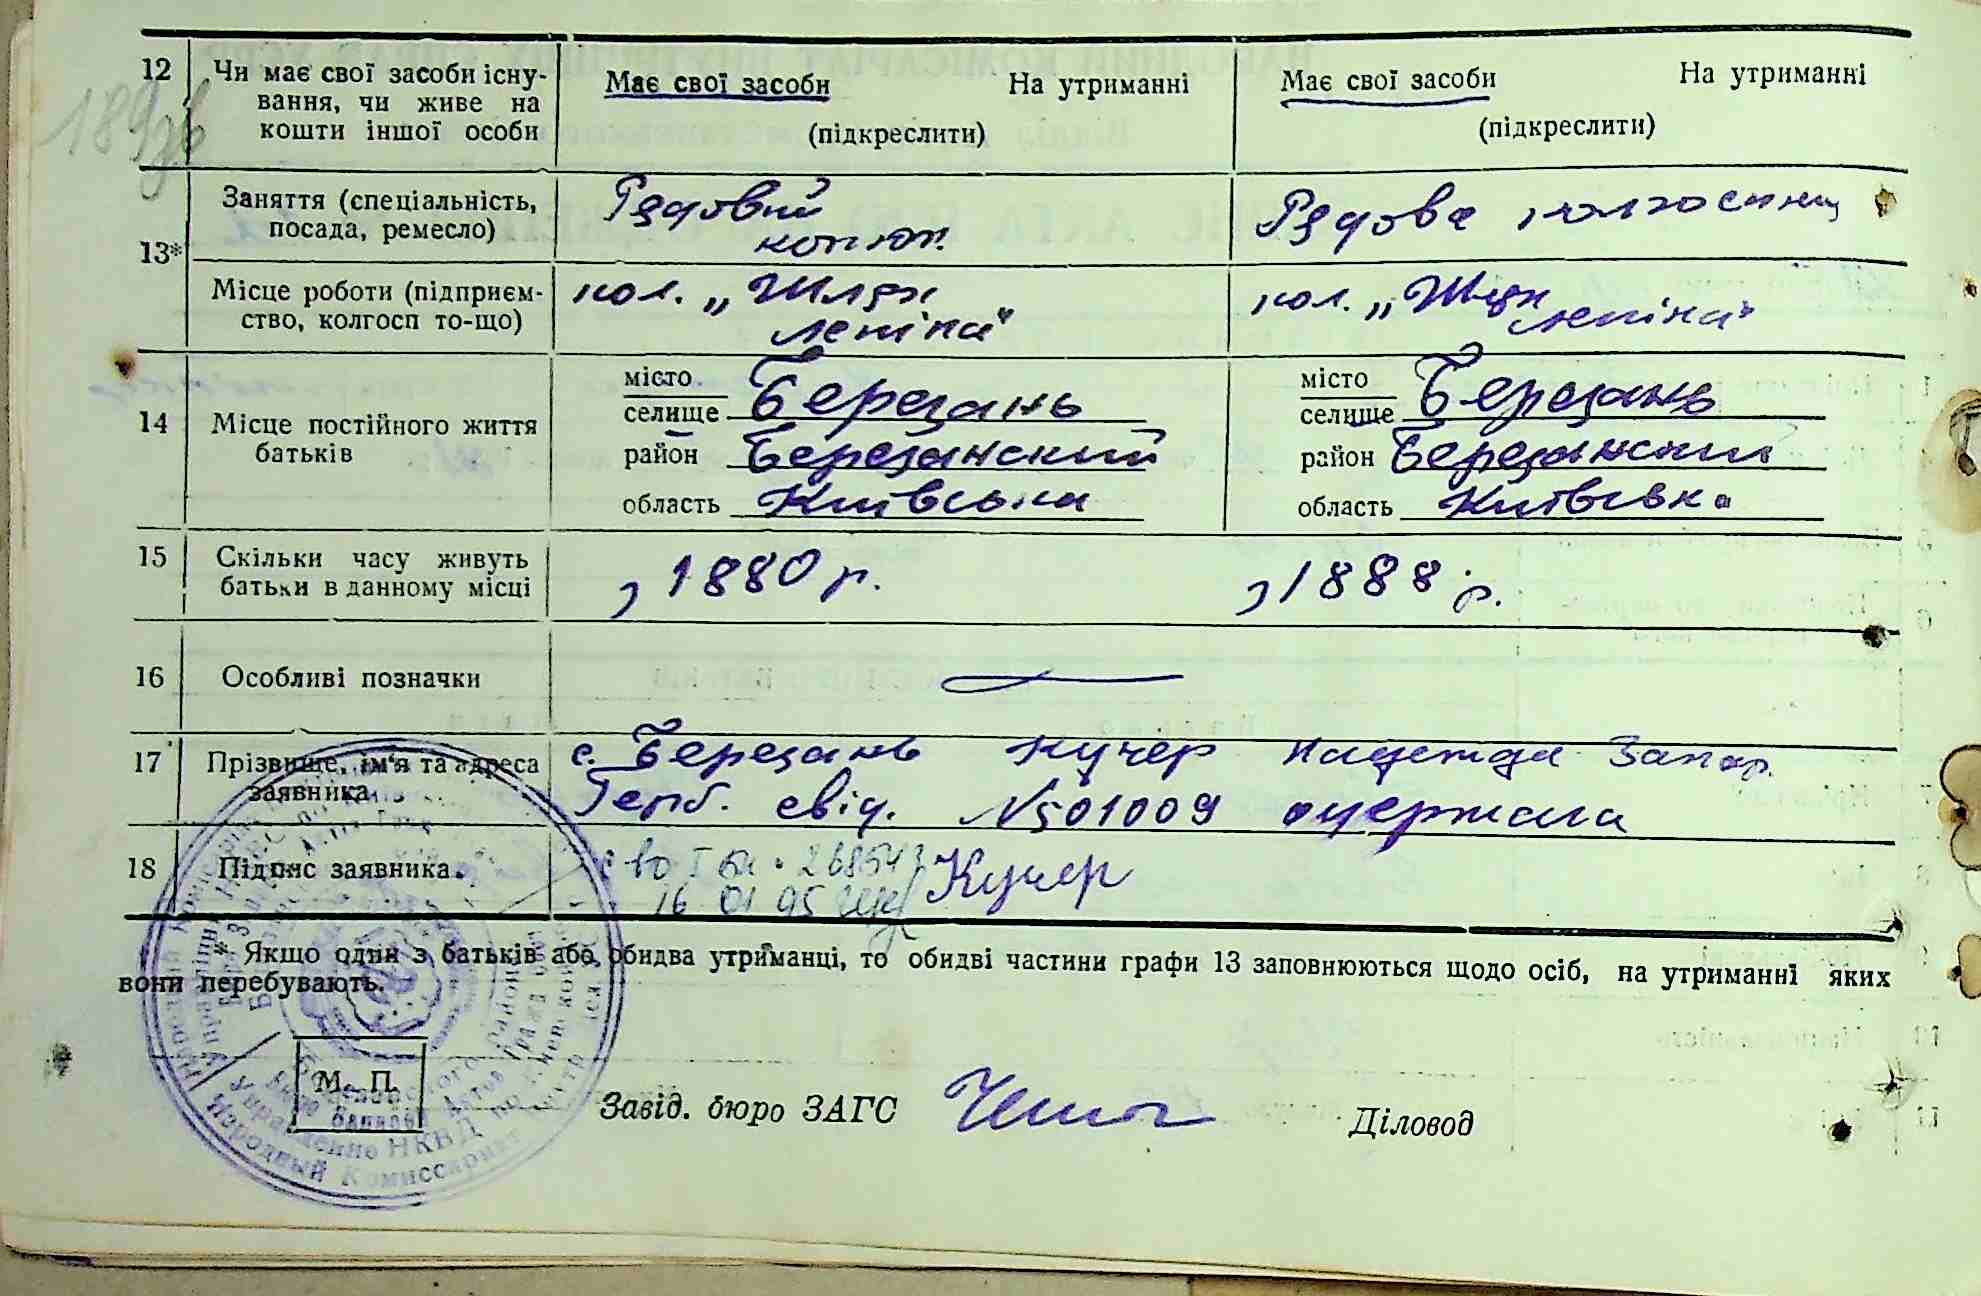 189зв
12 Чи має свої засоби існу-
вання, чи живе на
кошти іншої особи
Має свої засоби На утриманні
(підкреслити)
Має свої засоби На утриманні
(підкреслити)
13*
Заняття (спеціальність,
посада, ремесло)
Рядовий
Рядова
Місце роботи (підприєм-
ство, колгосп то-що)
кол. „Шлях
леніна"
кол. „Шлях
леніна"
14 Місце постійного життя
батьків
місто
селище Березань
район Березанский
область Київська
місто
селище Березань
район Березанский
область Київська
15 Скільки часу живуть
батьки в данному місці
з 1880 р.
з 1888 р.
16 Особливі позначки
17 Прізвище, ім'я та адреса
заявника
с. Березань Кучер Надежда Захар.
Герб. свід. № 501009 одержала
18 Підпис заявника.
16 01 95
Кучер
* Якщо один з батьків або обидва утриманці, то обидві частини графи 13 заповнюються щодо осіб, на утриманні яких
вони перебувають.
М. П.
Завід. бюро ЗАГС
Діловод
Народный Комиссариат
Управление НКВД по